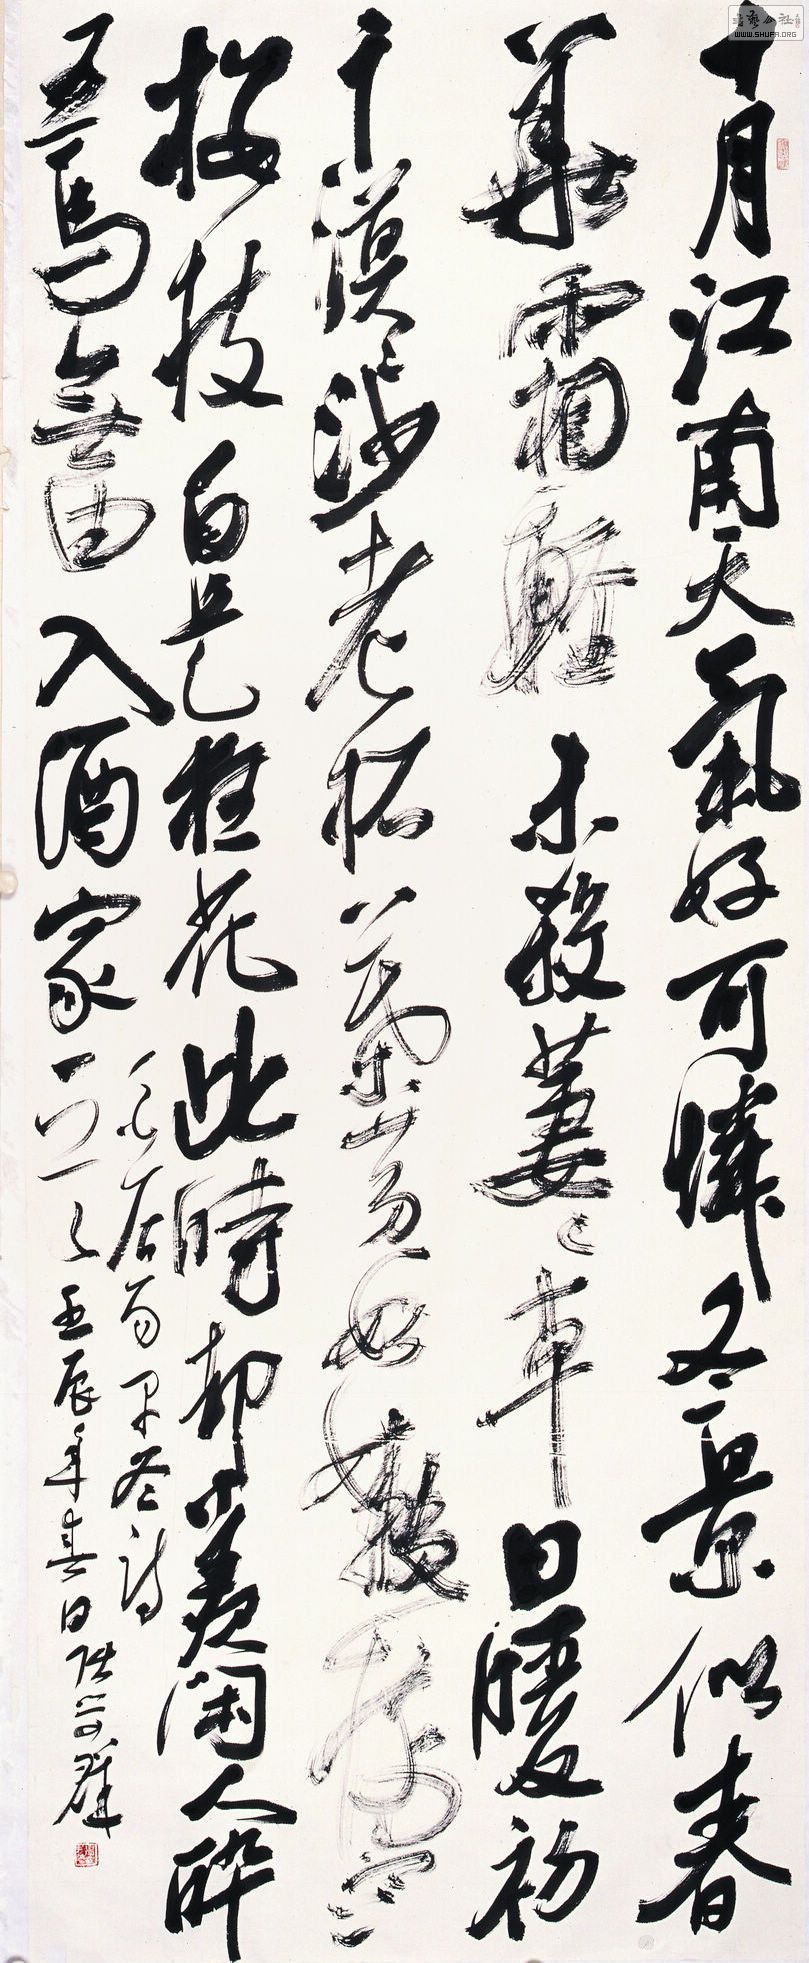 十月江南天氣好可憐冬景似春
華霜輕未殺萋〻草日暖初
干漠〻沙老柘葉黃如嫩樹寒
櫻枝白是狂花此時却羡闲人醉
五馬無由入酒家
白居易早冬詩
壬辰年春日
書藝公社
WWW.SHUFA.ORG